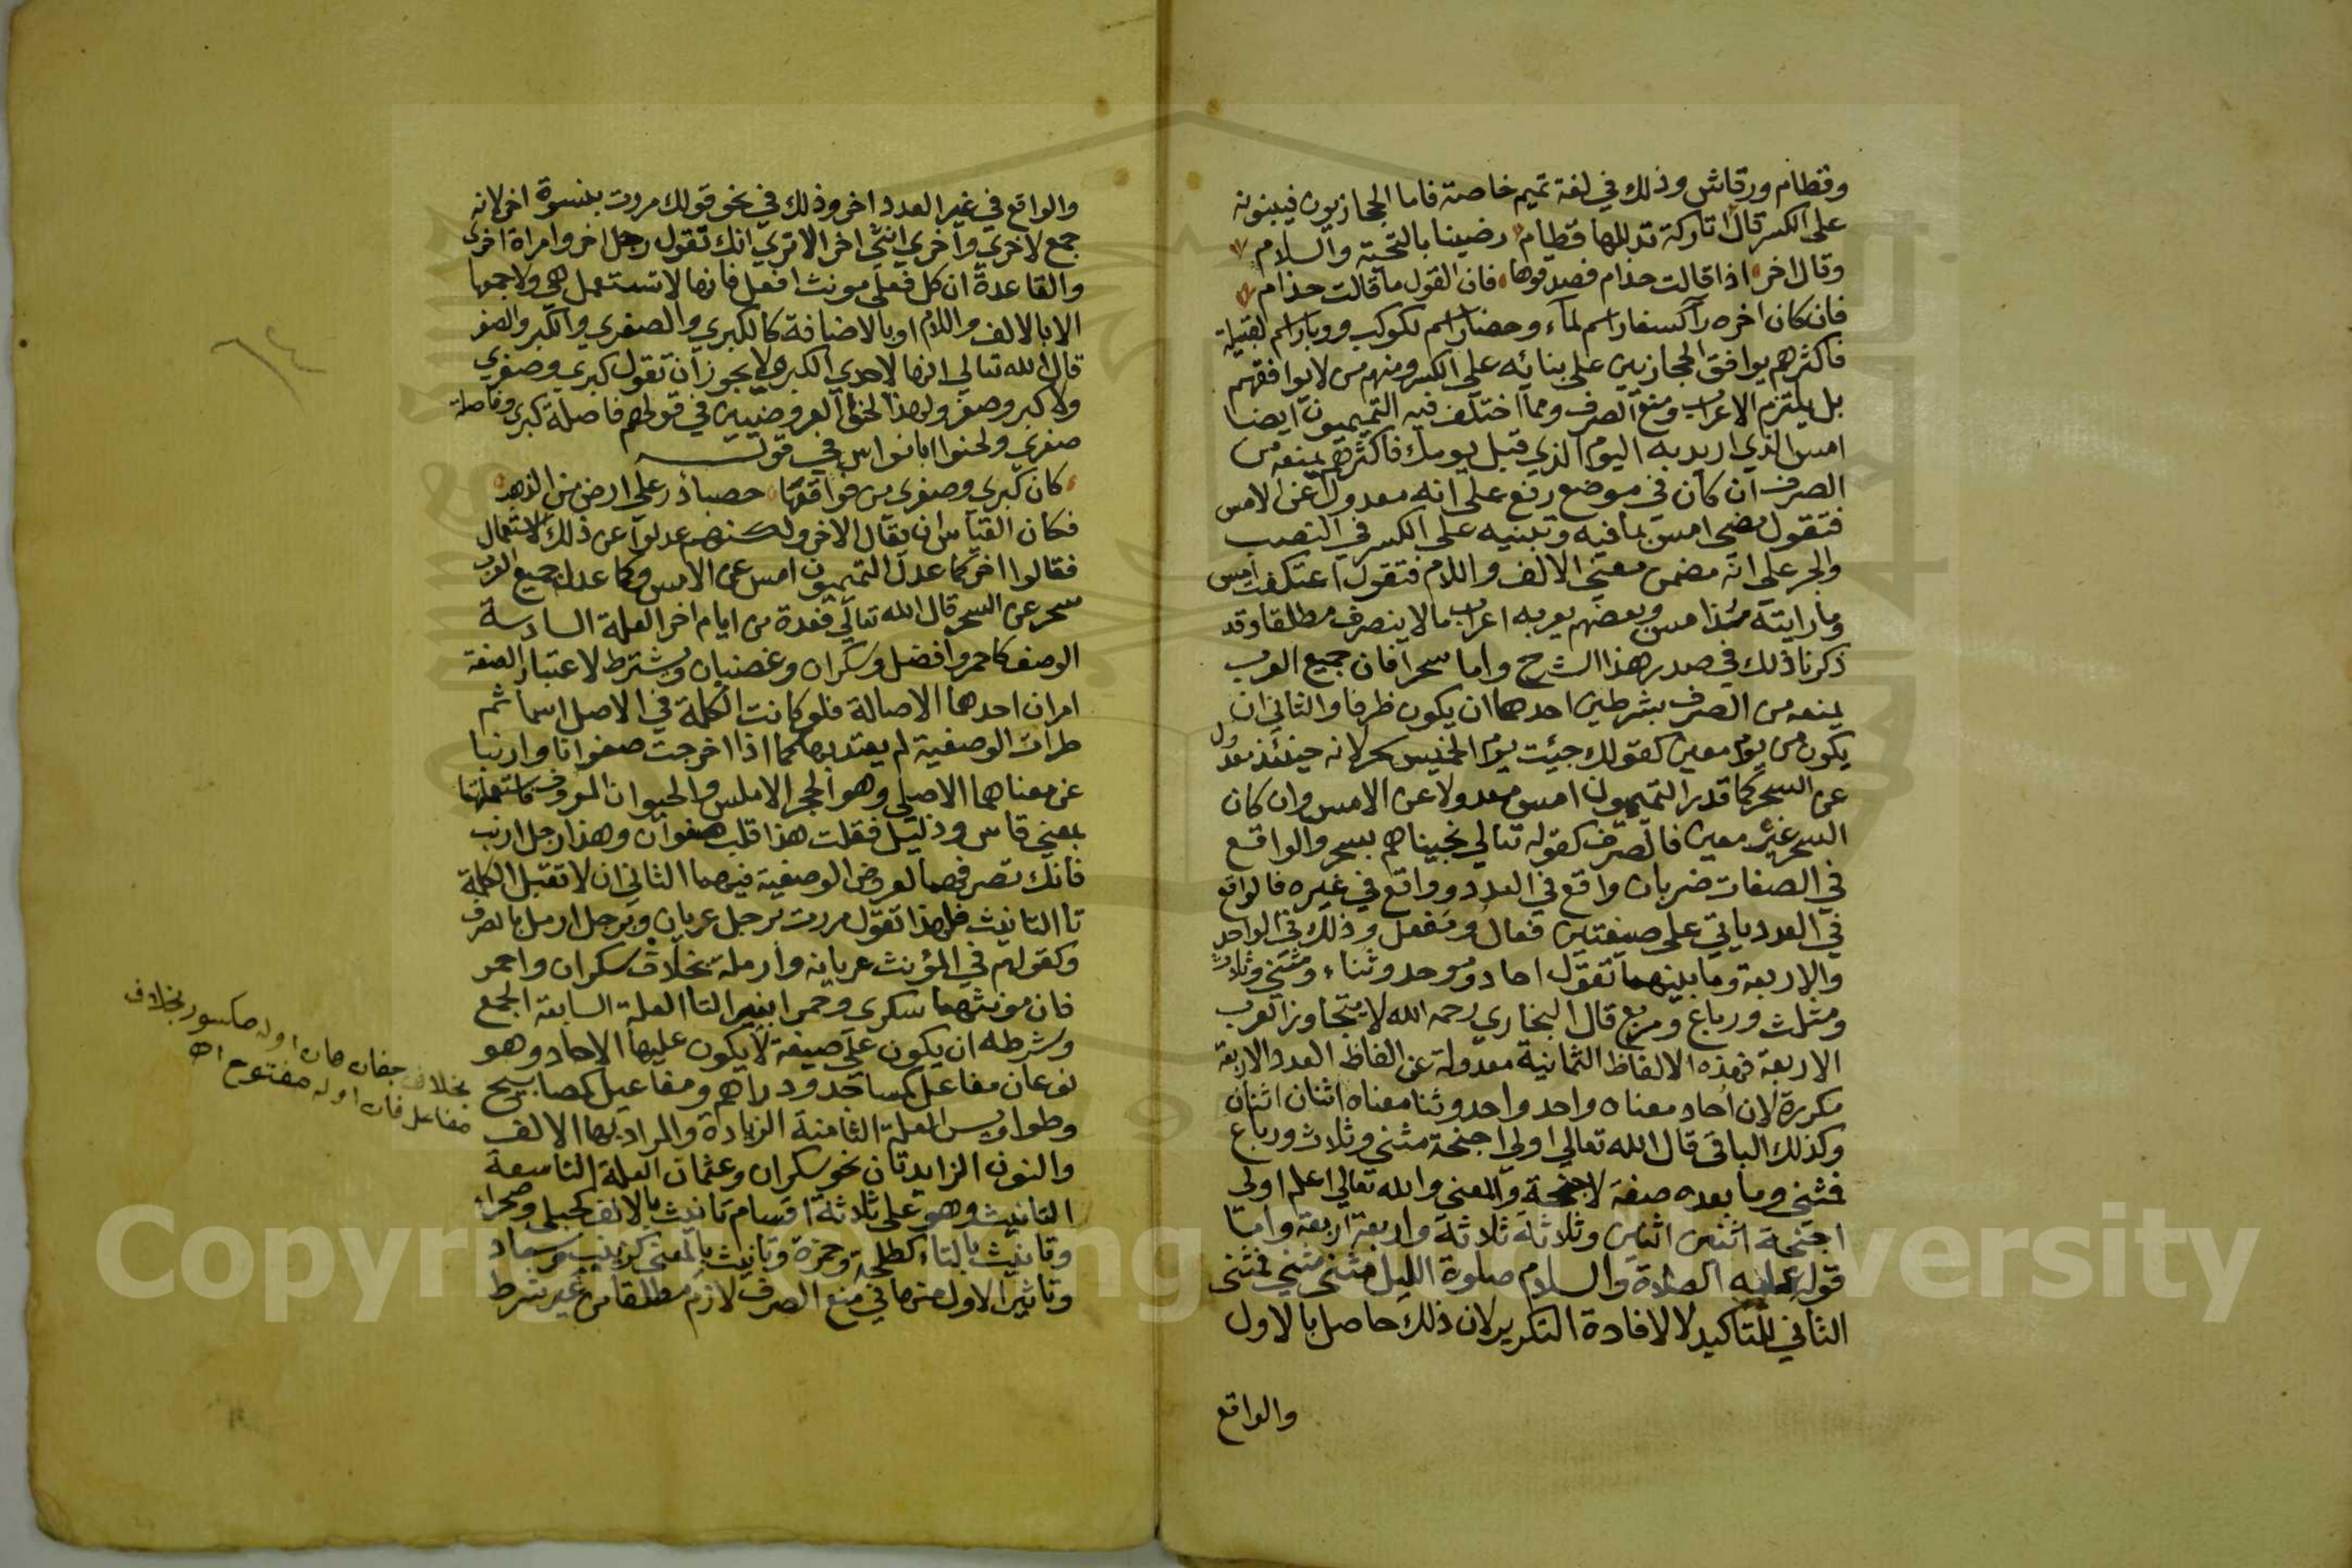 وقطام ورقاش وذلك في لغة تميم خاصة فاما الحجازيون فيبنونه
على الكسر قال اتاركة تدللها قطام رضينا بالتحية والسلام
وقال اخر اذا قالت حذام فصدقوها فان القول ما قالت حذام
فان كان اخره رآ كسفار اسم لمآء وحضار اسم لكوكب ووبار اسم لقبيلة
فاكثرهم يوافق الحجازيين على بنائه على الكسر ومنهم من لا يوافقهم
بل يلتزم الاعراب ومنع الصرف ومما اختلف فيه التميميون ايضا
امس الذي اريد به اليوم الذي قبل يومك فاكثرهم يمنعه من
الصرف ان كان في موضع رفع على انه معدول عن الامس
فتقول مضى امس بما فيه وتبنيه على الكسر في النصب
والجر على انه مضمن معنى الالف واللام فتقول اعتكفت امس
وما رايته مذ امس وبعضهم يعربه اعراب ما لا ينصرف مطلقا وقد
ذكرنا ذلك في صدر هذا الشرح واما سحر فان جميع العرب
يمنعه من الصرف بشرطين احدهما ان يكون ظرفا والثاني ان
يكون من يوم معين كقولك جيئت يوم الخميس سحر لانه حينئذ معدول
عن السحر كما قدر التميميون امس معدولا عن الامس وان كان
السحر غير معين فالصرف كقوله تعالي نجيناهم بسحر والواقع
في الصفات ضربان واقع في العدد وواقع في غيره فالواقع
في العدد ياتي على صيغتين فعال ومفعل وذلك في الواحد
والاربعة وما بينهما تقول احاد وموحد وثناء ومثنى وثلاث
ومثلث ورباع ومربع قال البخاري رحمه الله لا يتجاوز العرب
الاربعة فهذه الالفاظ الثمانية معدولة عن الفاظ العدد الاربعة
مكررة لان احاد معناه واحد واحد وثنا معناه اثنان اثنان
وكذلك الباقي قال الله تعالي اولي اجنحة مثنى وثلاث ورباع
فمثنى وما بعده صفة لاجنحة والمعنى والله تعالي اعلم اولى
اجنحة اثنين اثنين وثلاثة ثلاثة واربعة اربعة واما
قوله عليه الصلاة والسلام صلوة الليل مثنى مثنى فمثنى
الثاني للتاكيد لا لافادة التكرير لان ذلك حاصل بالاول
والواقع
والواقع في غير العدد اخر وذلك في نحو قولك مررت بنسوة اخر لانه
جمع لاخرى واخرى انثى اخر الا ترى انك تقول رجل اخر وامراة اخرى
والقاعدة ان كل فعلى مونث افعل فانها لا تستعمل هي ولا جمعها
الا بالالف واللام او بالاضافة كالكبرى والصغرى والكبر والصغر
قال الله تعالي انها لاحدى الكبر ولا يجوز ان تقول كبرى وصغرى
ولا كبر وصغر ولهذا لحنوا العروضيين في قولهم فاصلة كبرى وفاصلة
صغرى ولحنوا ابا نواس في قوله
كان كبرى وصغرى من فواقعها حصباء در على ارض من الذهب
فكان القياس ان يقال الاخر ولكنهم عدلوا عن ذلك الاستعمال
فقالوا اخر كما عدل التميميون امس عن الامس وكما عدل جميع العرب
سحر عن السحر قال الله تعالي فعدة من ايام اخر العلة السادسة
الوصف كاحمر وافضل وسكران وغضبان ويشترط لاعتبار الصفة
امران احدهما الاصالة فلو كانت الكلمة في الاصل اسما ثم
طرات الوصفية لم يعتد بها كما اذا اخرجت صفوانا وارنبا
عن معناهما الاصلي وهو الحجر الاملس والحيوان المعروف فاستعملتهما
بمعنى قاس وذليل فقلت هذا قلب صفوان وهذا رجل ارنب
فانك تصرفهما لعروض الوصفية فيهما الثاني ان لا تقبل الكلمة
تا التانيث فلهذا تقول مررت برجل عريان وبرجل ارمل بالصرف
وكقولهم في المؤنث عريانه وارملة بخلاف سكران واحمر
فان مونثهما سكرى وحمرا بغير التا العلة السابعة الجمع
وشرطه ان يكون على صيغة لا يكون عليها الاحاد وهو
نوعان مفاعل كمساجد ودراهم ومفاعيل كمصابيح
وطواويس العلة الثامنة الزيادة والمراد بها الالف
والنون الزايدتان نحو سكران وعثمان العلة التاسعة
التانيث وهو على ثلاثة اقسام تانيث بالالف كحبلى وصحراء
وتانيث بالتاء كطلحة وحمزة وتانيث بالمعنى كزينب وسعاد
وتاثير الاول منها في منع الصرف لازم مطلقا من غير شرط
اوله مكسور بخلاف
مفاعل فان اوله مفتوح اه
Copyright © King Saud University